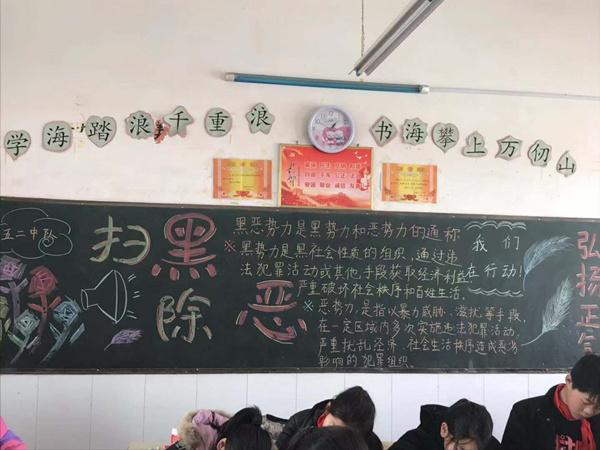 学海踏浪千重浪
书海攀上万仞山
富强 民主 文明 和谐
自由 平等 公正 法治
爱国 敬业 诚信 友善
五二中队
扫黑除恶
黑恶势力是黑势力和恶势力的通称
※黑势力是黑社会性质的组织,通过违
法犯罪活动或其他手段获取经济利益,
严重破坏社会秩序和百姓生活。
※恶势力,是指以暴力威胁、滋扰等手段,
在一定区域内多次实施违法犯罪活动,
严重扰乱经济、社会生活秩序造成恶劣
影响的犯罪组织。
我们
在行动!
弘扬正气